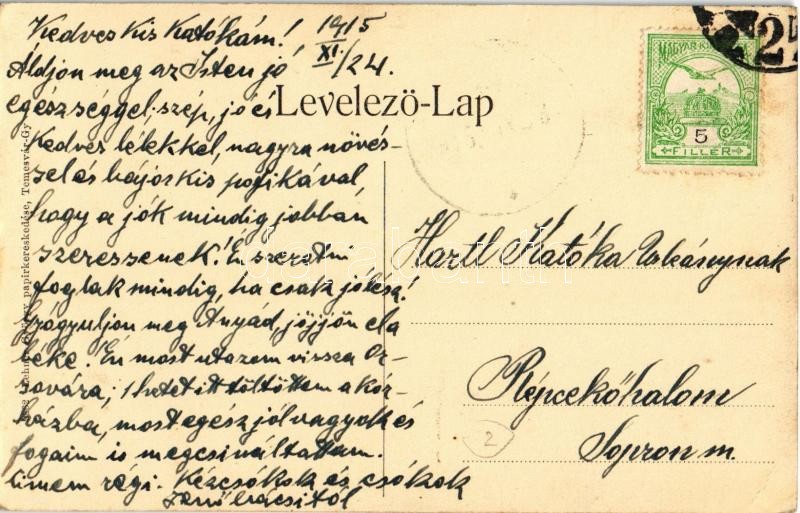 Kedves Kis Katókám! 1915
XI./24.
Áldjon meg az Isten jó
egészséggel, szép, jó és
kedves lélekkel, nagyra növés-
sel és bájos kis pofikával,
hogy a jók mindig jobban
szeressenek! Én szeretni
foglak mindig, ha csak jó lész!
Gyógyuljon meg Anyád, jöjjön el a
béke! Én most utazom vissza Or-
sovára; 1 hetet itt töltöttem a kór-
házba, most egész jól vagyok és
fogaim is megcsináltattam.
Címem régi. Kézcsókok és csókok
Jenő bácsitól
Levelező-Lap
MAGYAR KIR.
5
FILLÉR
27
Hartl Katóka leánynak
Répcekőhalom
Sopron m.
2
papirkereskedése, Temesvár-Gy
darabanth